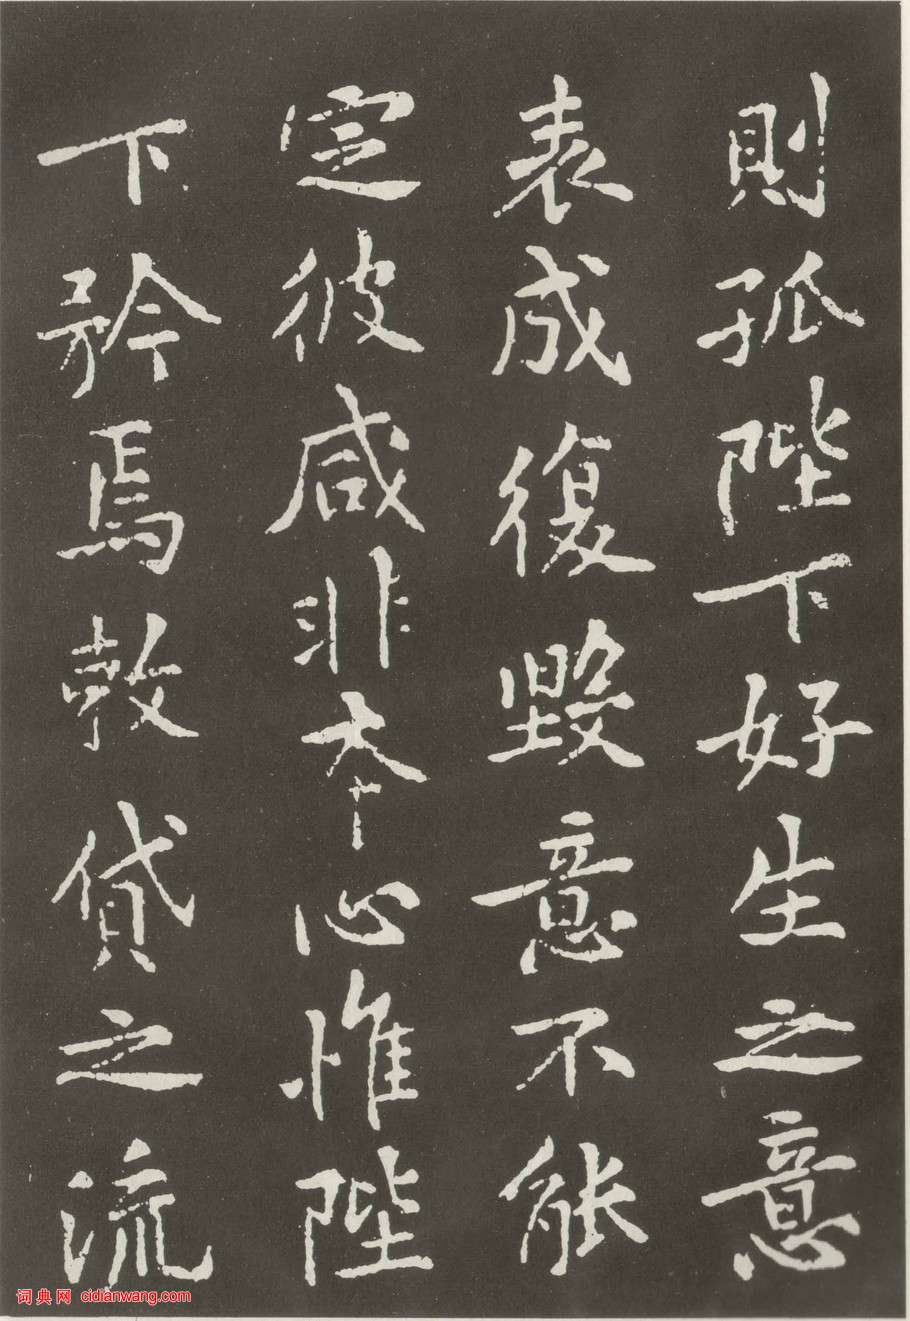 則孤陛下好生之意
表成復毀意不能
定彼咸非本心惟陛
下矜焉敕貸之流
词典网 cidianwang.com